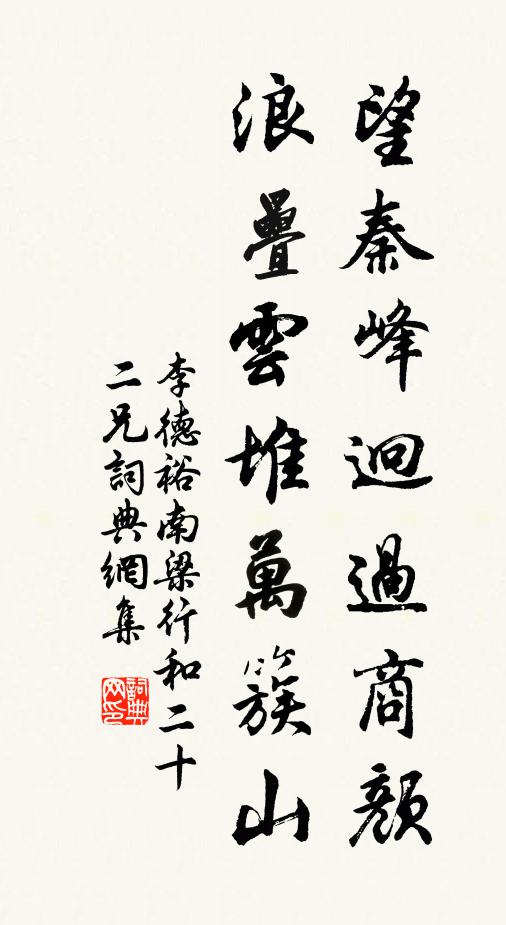 望秦峰迴過商顏
浪疊雲堆萬簇山
李德裕南梁行和二十
二兄詞典網集
詞典
网印